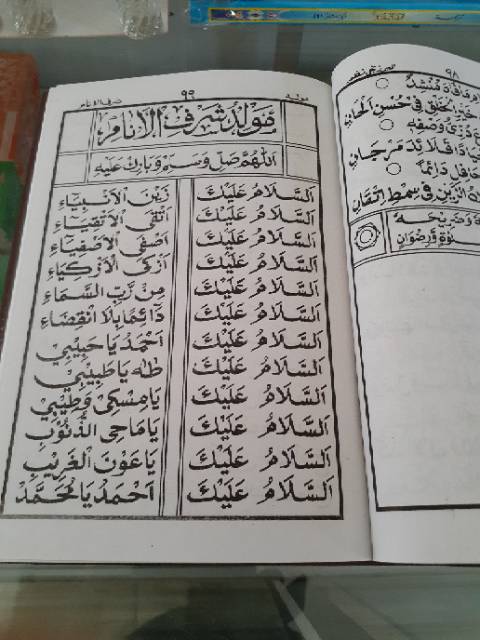 مولد ٩٩ شرف الأنام
مَوْلِدُ شَرَفِ الْأَنَامِ
اَللّٰهُمَّ صَلِّ وَسَلِّمْ وَبَارِكْ عَلَيْهِ
اَلسَّلَامُ عَلَيْكَ زَيْنَ الْأَنْبِيَاءِ
اَلسَّلَامُ عَلَيْكَ اَتْقَى الْأَتْقِيَاءِ
اَلسَّلَامُ عَلَيْكَ اَصْفَى الْأَصْفِيَاءِ
اَلسَّلَامُ عَلَيْكَ اَزْكَى الْأَزْكِيَاءِ
اَلسَّلَامُ عَلَيْكَ مِنْ رَّبِّ السَّمَاءِ
اَلسَّلَامُ عَلَيْكَ دَائِمًا بِلَا انْقِضَاءِ
اَلسَّلَامُ عَلَيْكَ اَحْمَدُ يَا حَبِيْبِيْ
اَلسَّلَامُ عَلَيْكَ طٰهٰ يَا طَبِيْبِيْ
اَلسَّلَامُ عَلَيْكَ يَا مِسْكِيْ وَطِيْبِيْ
اَلسَّلَامُ عَلَيْكَ يَا مَاحِي الذُّنُوْبِ
اَلسَّلَامُ عَلَيْكَ يَا عَوْنَ الْغَرِيْبِ
اَلسَّلَامُ عَلَيْكَ اَحْمَدُ يَا مُحَمَّدُ
٩٨
مُنْشِدٌ
الْخَلْقِ فِيْ حُسْنِ
وَصْفِهِ
قَلَائِدَ مَرْجَانِ
دَائِمًا
الزَّيْنِ فِيْ سِمْطِ اِتْقَانِ
ضَرِيْحَهُ
وَّرِضْوَانٍ